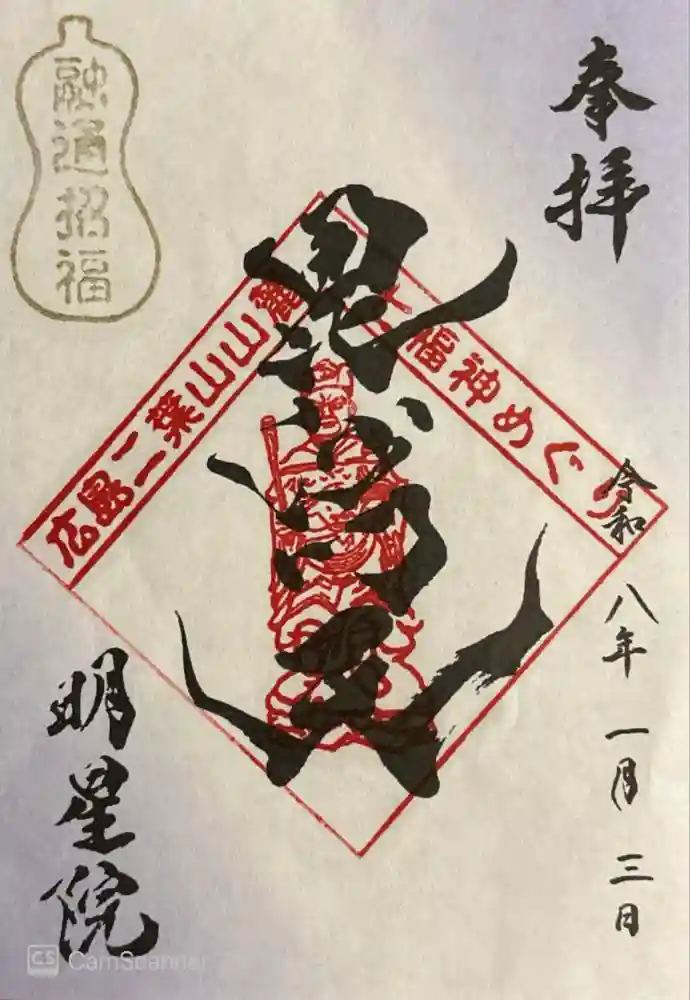 奉拝
令和八年一月三日
毘沙門天
広島二葉山山麓
七福神めぐり
融通招福
明星院
CS CamScanner